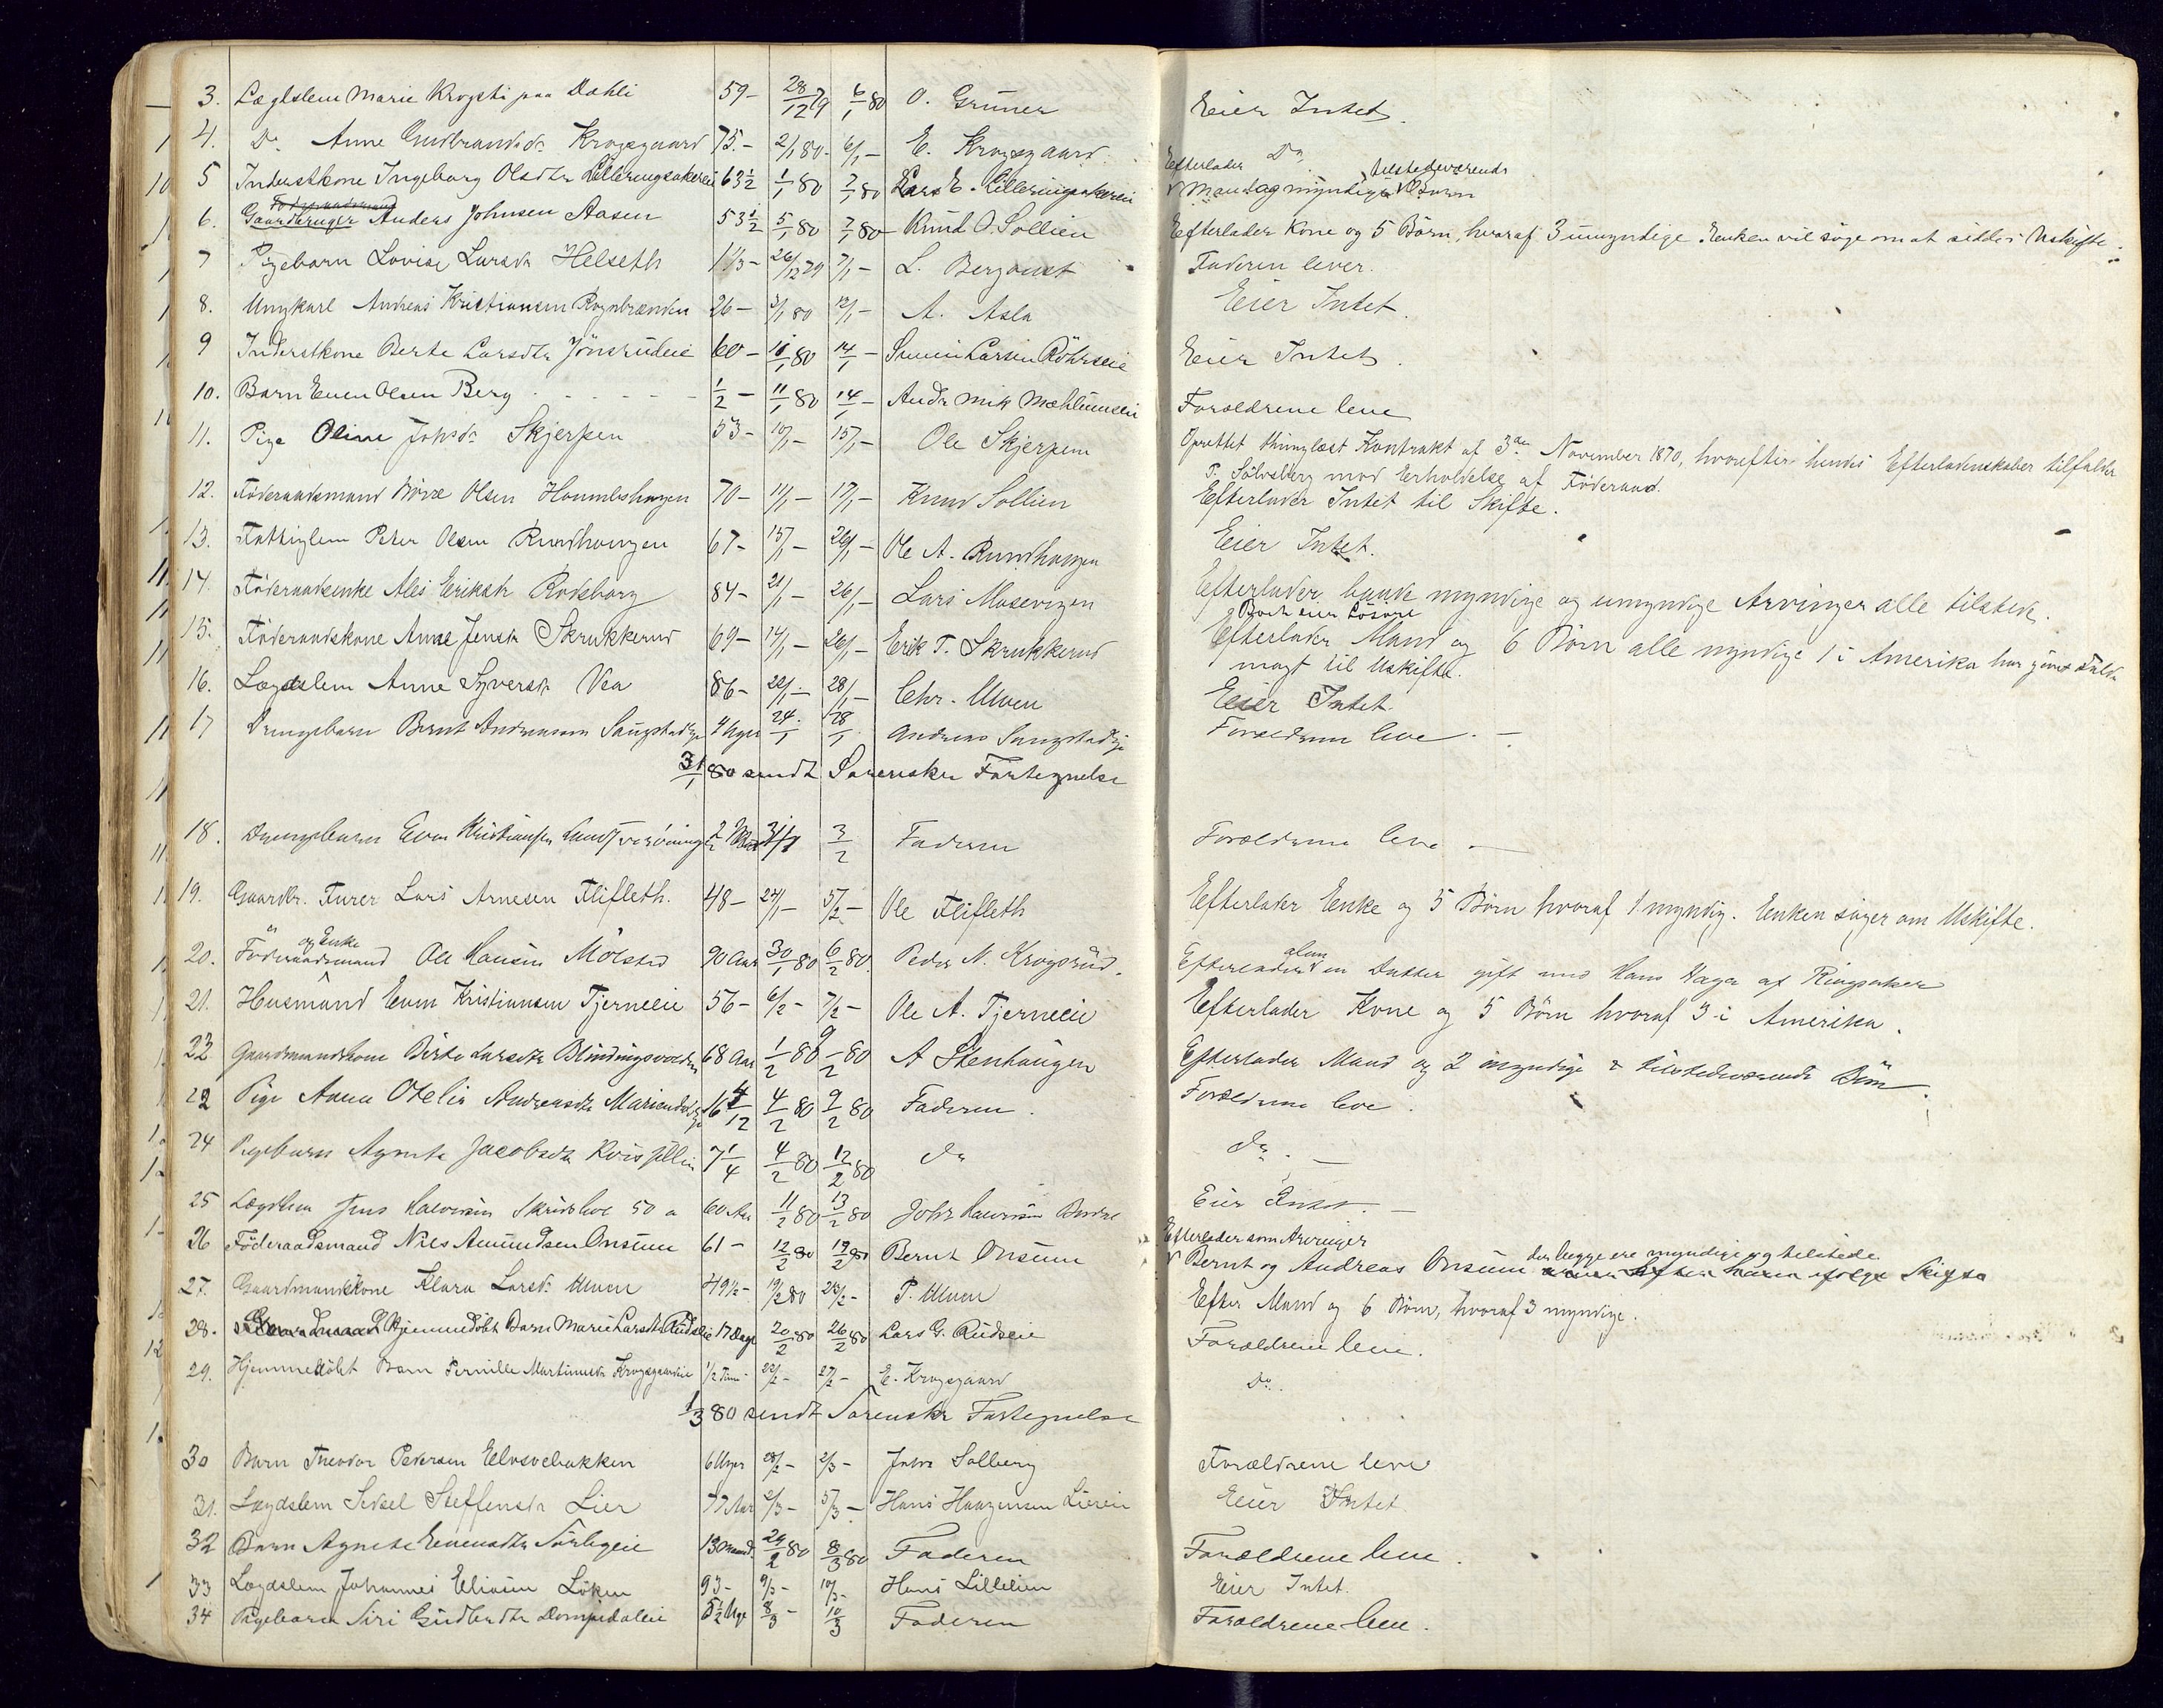 3. Lægdslem Marie Krogsti paa Dahli 59- 28/12 79 6/1 80 O. Gruner Eier Intet.
4. Do. Anne Gudbrandsdr. Krogsgaard 75.- 2/1 80- 6/1 - E. Krogsgaard. Do.
5 Inderstkone Ingeborg Olsdtr Lilleringsakereie 63 1/2 1/1 80 7/1 80 Lars E. Lilleringsakereie Efterlader Mand og myndige tilstedeværende Børn
6. Gaardbruger Anders Johnsen Aasen 53 1/2 5/1 80 7/1 80 Knud O. Sollien Efterlader Kone og 5 Börn, hvoraf 3 umyndige. Enken vil söge om at sidde i Uskifte.
7 Pigebarn Lovise Larsdr Helseth 1 1/3 - 26/12 79 7/1 - L. Bergqvist Faderen lever.
8. Ungkarl Andreas Kristiansen Rognbrænden 26 - 3/1 80 12/1 - A. Asla Eier Intet.
9 Inderstkone Berte Larsdtr Jönsrudeie 60 - 11/1 80 14/1 - Simen Larsen Röhrseie Eier Intet.
10. Barn Even Olsen Berg 1/2 - 11/1 80 14/1 - Andr Mik Mæhlumseie Forældrene leve
11. Pige Oline Johsdr Skjerpen 53- 10/1 - 15/1 - Ole Skjerpen Oprettet thinglæst Kontrakt af 3die November 1870, hvorefter hendes Efterladenskaber tilfalder
P. Sölvsberg mod Erholdelse af Föderaad.
12. Föderaadsmand Börre Olsen Houmbshagen 70- 11/1 - 17/1 - Knud Sollien Efterlader Intet til Skifte.
13. Fattiglem Peter Olsen Rundhaugen 67- 15/1 - 26/1 - Ole A. Rundhaugen Eier Intet.
14. Föderaadsenke Ales Eriksdr Rodsborg 84- 21/1 - 26/1 - Lars Mosevigen Efterlader baade myndige og umyndige Arvinger alle tilstede.
15. Föderaadskone Anne Jensdr Skrukkerud 69- 14/1 - 26/1 - Erik T. Skrukkerud Efterlader Mand og 6 Börn alle myndige 1 i Amerika har givet Fuld-
magt til Uskifte.
16. Lægdslem Anne Syversdr Vea 86- 22/1 - 28/1 - Chr. Ulven Eier Intet
17 Drengebarn Bernt Andreassen Saugstadeje 4 Uger 24/1 28/1 Andreas Saugstadeje Forældrene leve. -
31/1 80 sendt Sorensker Fortegnelse
18. Drengebarn Even Kristiansen 3/2 Faderen Forældrene leve -
19. Gaardbr. Furer Lars Arnesen Flifleth. 48- 5/2 - Ole Flifleth Efterlader Enke og 5 Börn hvoraf 1 myndig. Enken söger om Uskifte.
20. Föderaadsmand og Enke Ole Hansen Mölsted 90 Aar 30/1 80 6/2 80 Peder N. Krogsrud. Efterlader alene en Datter gift med Hans Hager af Ringsaker
21. Husmand Even Kristiansen Tjerneeie 56- 6/2 - 7/2 - Ole A. Tjerneeie Efterlader Kone og 5 Börn hvoraf 3 i Amerika.
23 Gaardmandskone Birte Larsdtr 68 Aar 1/2 80 9/2 80 A Stenhaugen Efterlader Mand og 2 myndige & tilstedeværende Börn.
22 Pige Anna Otelia Andreasdtr 16 4/12 4/2 80 9/2 80 Faderen. Forældrene leve.
24 Pigebarn Agnete Jacobsdtr 7 1/4 4/2 80 12/2 80 do do. -
25 Lægdslem Jens Halvorsen 60 Aar 11/2 80 13/2 80 Johs Halvorsen Eier Intet. -
26 Föderaadsmand Nils Amundsen Onsum 61 - 12/2 80 19/2 80 Bernt Onsum Efterlader som Arvinger Bernt og Andreas Onsum der begge ere myndige og tilstede
27. Gaardmandskone Klara Larsdr Ulven 49 1/2 - 19/2 80 25/2 - P. Ulven Efter Mand og 6 Börn, hvoraf 3 myndige.
28. Hjemmedöbt Barn Marie Larsdtr Rudseie 17 Dage 20/2 80 26/2 80 Lars G. Rudseie Forældrene leve.
29. Hjemmedöbt Barn Pernille Martinusdr Krogsgaardeie 1/2 Time 22/2 - 27/2 - E. Krogsgaard Do.
1/3 80 sendt Sorenskr Fortegnelse
30 Barn Theodor Pedersen Elvsvebakken 6 Uger 28/2 - 2/3 - Johs Solberg Forældrene leve
31. Lægdslem Sidsel Steffensdr Lier 77 Aar 2/3 - 5/3 - Hans Haagensen Liereie Eier Intet
32 Barn Agnete Evensdtr 13 Maaned. 24/2 80 8/3 80 Faderen Forældrene leve.
33 Lægdslem Johannes Eliasen Löken 93- 9/3 - 10/3 - Hans Lillelien Eier Intet.
34 Pigebarn Siri Gudbrdtr Dompidaleie 5 1/2 Uge 8/3 - 10/3 Faderen Forældrene leve.